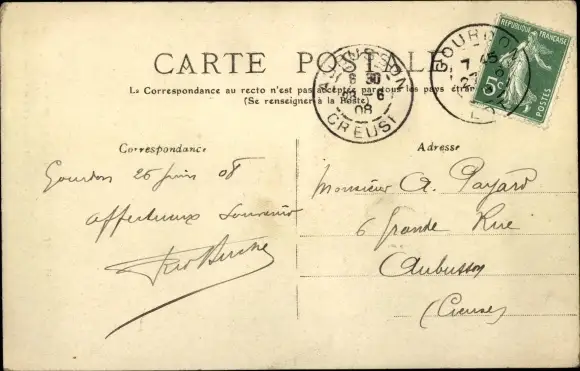 CARTE POSTALE
La Correspondance au recto n'est pas acceptée par tous les pays étran
(Se renseigner à la Poste)
RÉPUBLIQUE FRANÇAISE
5c
POSTES
GOURDON
7 45
LOT
AUBUSSON
8 30
6
08
CREUSE
Correspondance
Gourdon 26 juin 08
affectueux souvenir
Adresse
Monsieur A. Payard
6 Grande Rue
Aubusson
(Creuse)